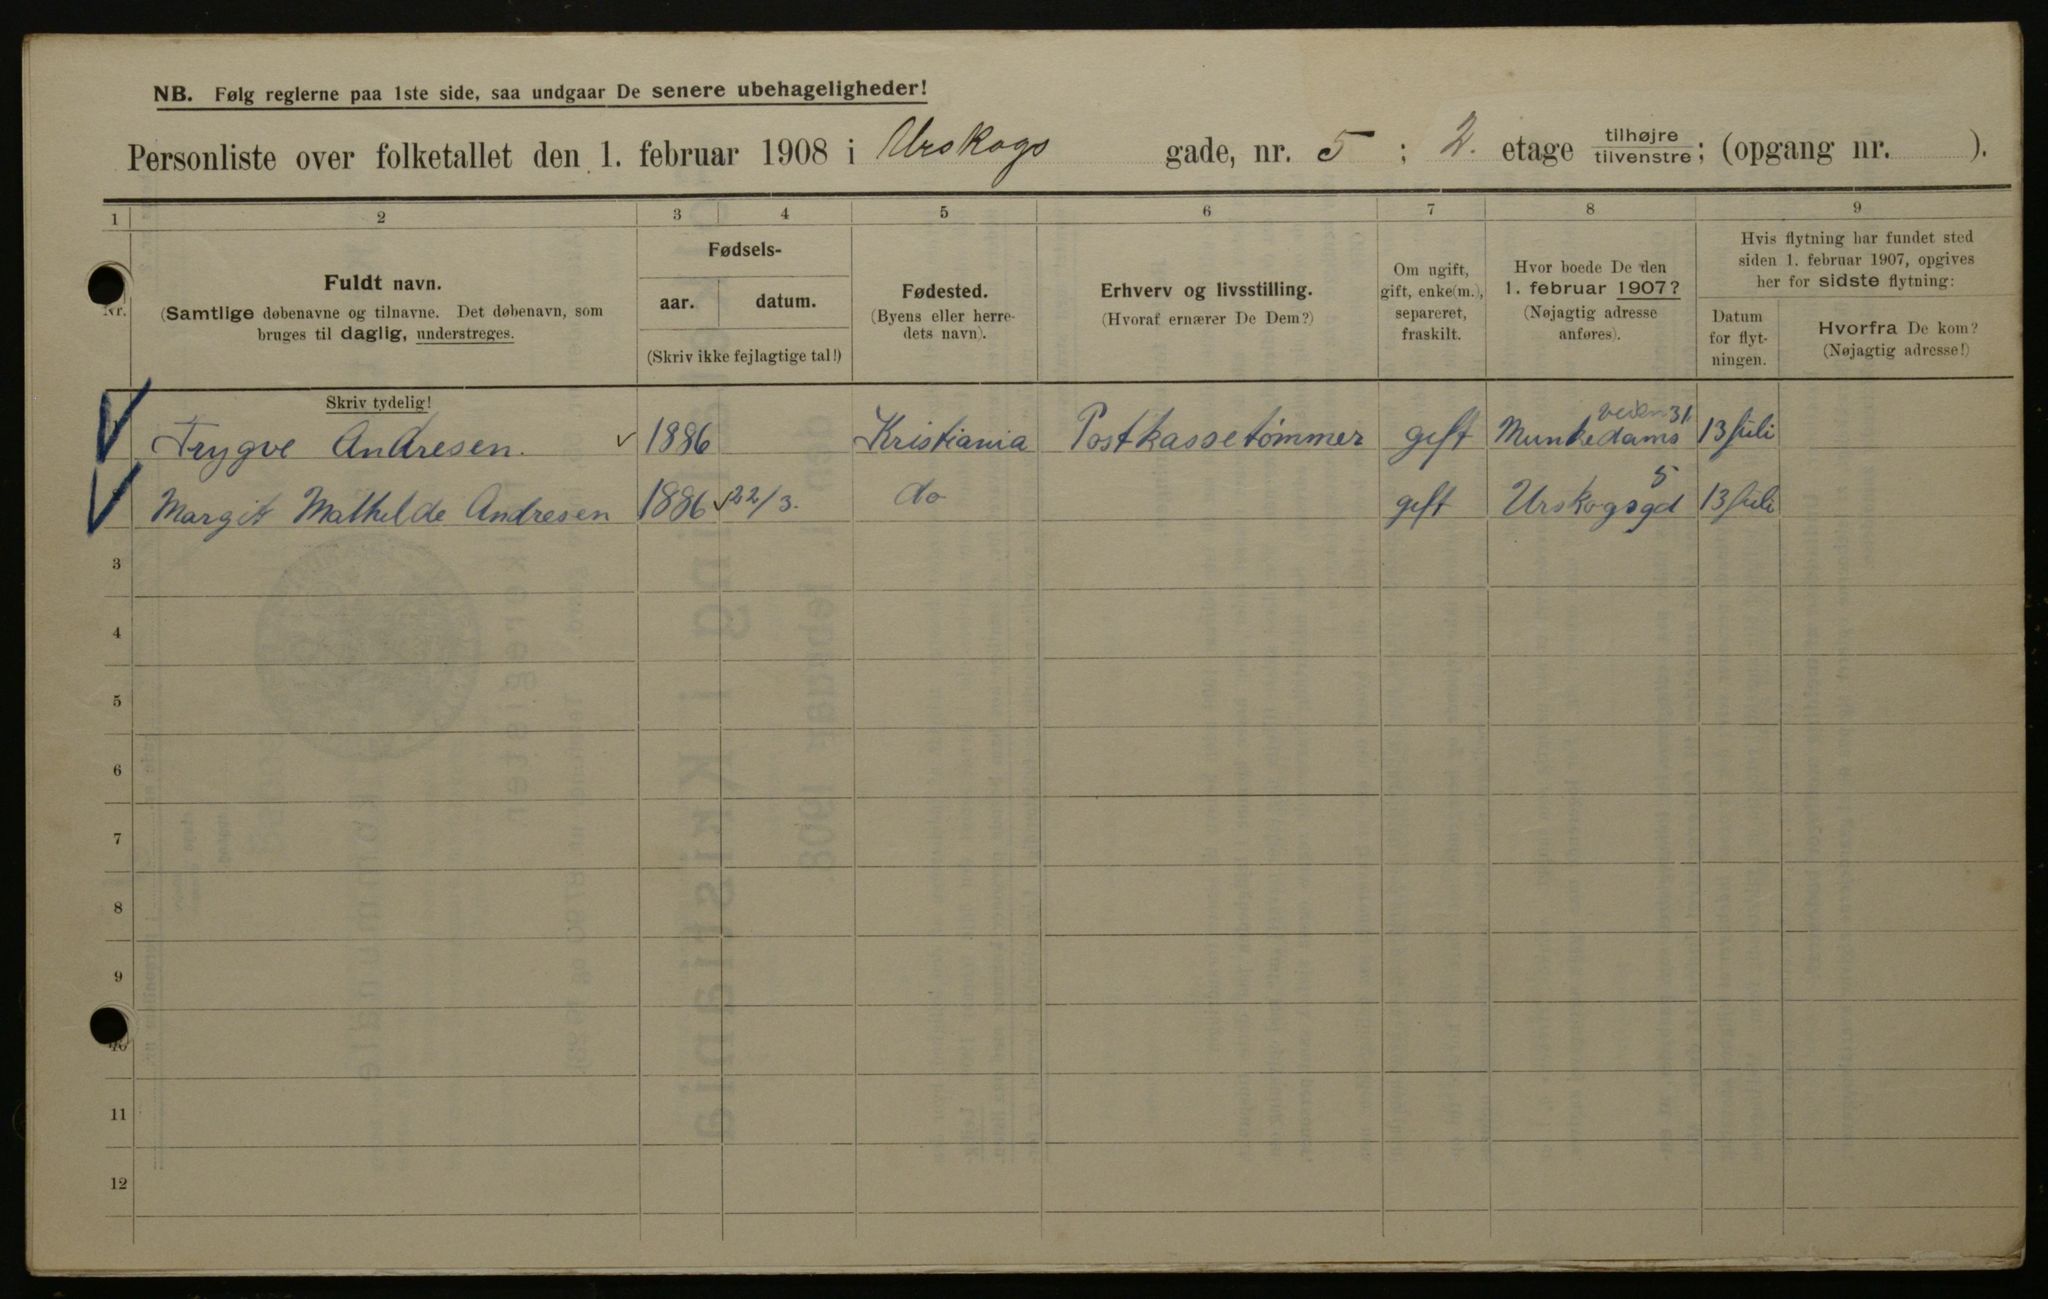 NB. Følg reglerne paa 1ste side, saa undgaar De senere ubehageligheder!
Personliste over folketallet den 1. februar 1908 i Urskogs gade, nr. 5 ; 2. etage tilhøjre/tilvenstre; (opgang nr. ).
1 2 3 4 5 6 7 8 9
Nr.
Fuldt navn.
(Samtlige døbenavne og tilnavne. Det døbenavn, som
bruges til daglig, understreges.
Skriv tydelig!
Fødsels-
aar. datum.
(Skriv ikke fejlagtige tal!)
Fødested.
(Byens eller herre-
dets navn).
Erhverv og livsstilling.
(Hvoraf ernærer De Dem?)
Om ugift,
gift, enke(m.),
separeret,
fraskilt.
Hvor boede De den
1. februar 1907?
(Nøjagtig adresse
anføres).
Hvis flytning har fundet sted
siden 1. februar 1907, opgives
her for sidste flytning:
Datum
for flyt-
ningen.
Hvorfra De kom?
(Nøjagtig adresse!)
Trygve Andresen. 1886 Kristiania Postkassetømmer gift Munkedams veien 31 13 Juli
Margit Mathilde Andresen 1886 22/3. do gift Urskogsgd 5 13 Juli
3
4
5
6
7
8
9
10
11
12